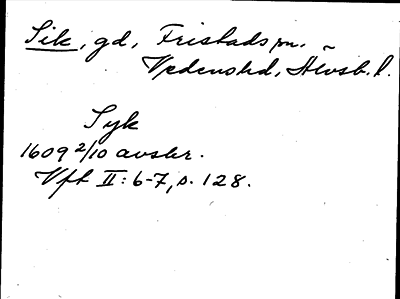 Sik, gd, Fristads sn.
Vedens hd, Älvsb. l.
Syk
1609 2/10 avskr.
Vft II: 6-7, s. 128.